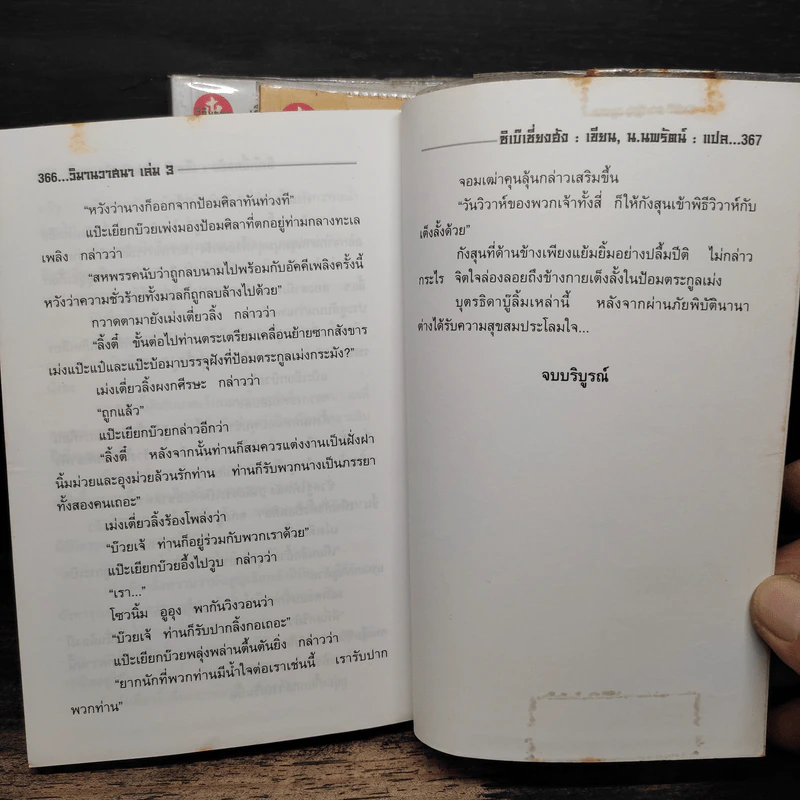 366...วิมานวาสนา เล่ม 3
"หวังว่านางก็ออกจากป้อมศิลาทันท่วงที"
แป๊ะเยียกบ๊วยเพ่งมองป้อมศิลาที่ตกอยู่ท่ามกลางทะเล
เพลิง กล่าวว่า
"สหพรรคนับว่าถูกลบนามไปพร้อมกับอัคคีเพลิงครั้งนี้
หวังว่าความชั่วร้ายทั้งมวลก็ถูกลบล้างไปด้วย"
กวาดตามายังเม่งเตี่ยวลิ้ง กล่าวว่า
"ลิ้งตี๋ ขั้นต่อไปท่านตระเตรียมเคลื่อนย้ายซากสังขาร
เม่งแป๊ะแป๋และแป๊ะบ้อมาบรรจุฝังที่ป้อมตระกูลเม่งกระมัง?"
เม่งเตี่ยวลิ้งผงกศีรษะ กล่าวว่า
"ถูกแล้ว"
แป๊ะเยียกบ๊วยกล่าวอีกว่า
"ลิ้งตี๋ หลังจากนั้นท่านก็สมควรแต่งงานเป็นฝั่งฝา
นิ้มม่วยและอุงม่วยล้วนรักท่าน ท่านก็รับพวกนางเป็นภรรยา
ทั้งสองคนเถอะ"
เม่งเตี่ยวลิ้งร้องโพล่งว่า
"บ๊วยเจ้ ท่านก็อยู่ร่วมกับพวกเราด้วย"
แป๊ะเยียกบ๊วยอึ้งไปวูบ กล่าวว่า
"เรา..."
โซวนิ้ม อูอุง พากันวิงวอนว่า
"บ๊วยเจ้ ท่านก็รับปากลิ้งกอเถอะ"
แป๊ะเยียกบ๊วยพลุ่งพล่านตื้นตันยิ่ง กล่าวว่า
"ยากนักที่พวกท่านมีน้ำใจต่อเราเช่นนี้ เรารับปาก
พวกท่าน"
ชิเบ๊เชี่ยงฮัง : เขียน, น.นพรัตน์ : แปล...367
จอมเฒ่าคุนลุ้นกล่าวเสริมขึ้น
"วันวิวาห์ของพวกเจ้าทั้งสี่ ก็ให้กังสุนเข้าพิธีวิวาห์กับ
เต็งลั้งด้วย"
กังสุนที่ด้านข้างเพียงแย้มยิ้มอย่างปลื้มปีติ ไม่กล่าว
กระไร จิตใจล่องลอยถึงข้างกายเต็งลั้งในป้อมตระกูลเม่ง
บุตรธิดาบู๊ลิ้มเหล่านี้ หลังจากผ่านภัยพิบัตินานา
ต่างได้รับความสุขสมประโลมใจ...
จบบริบูรณ์